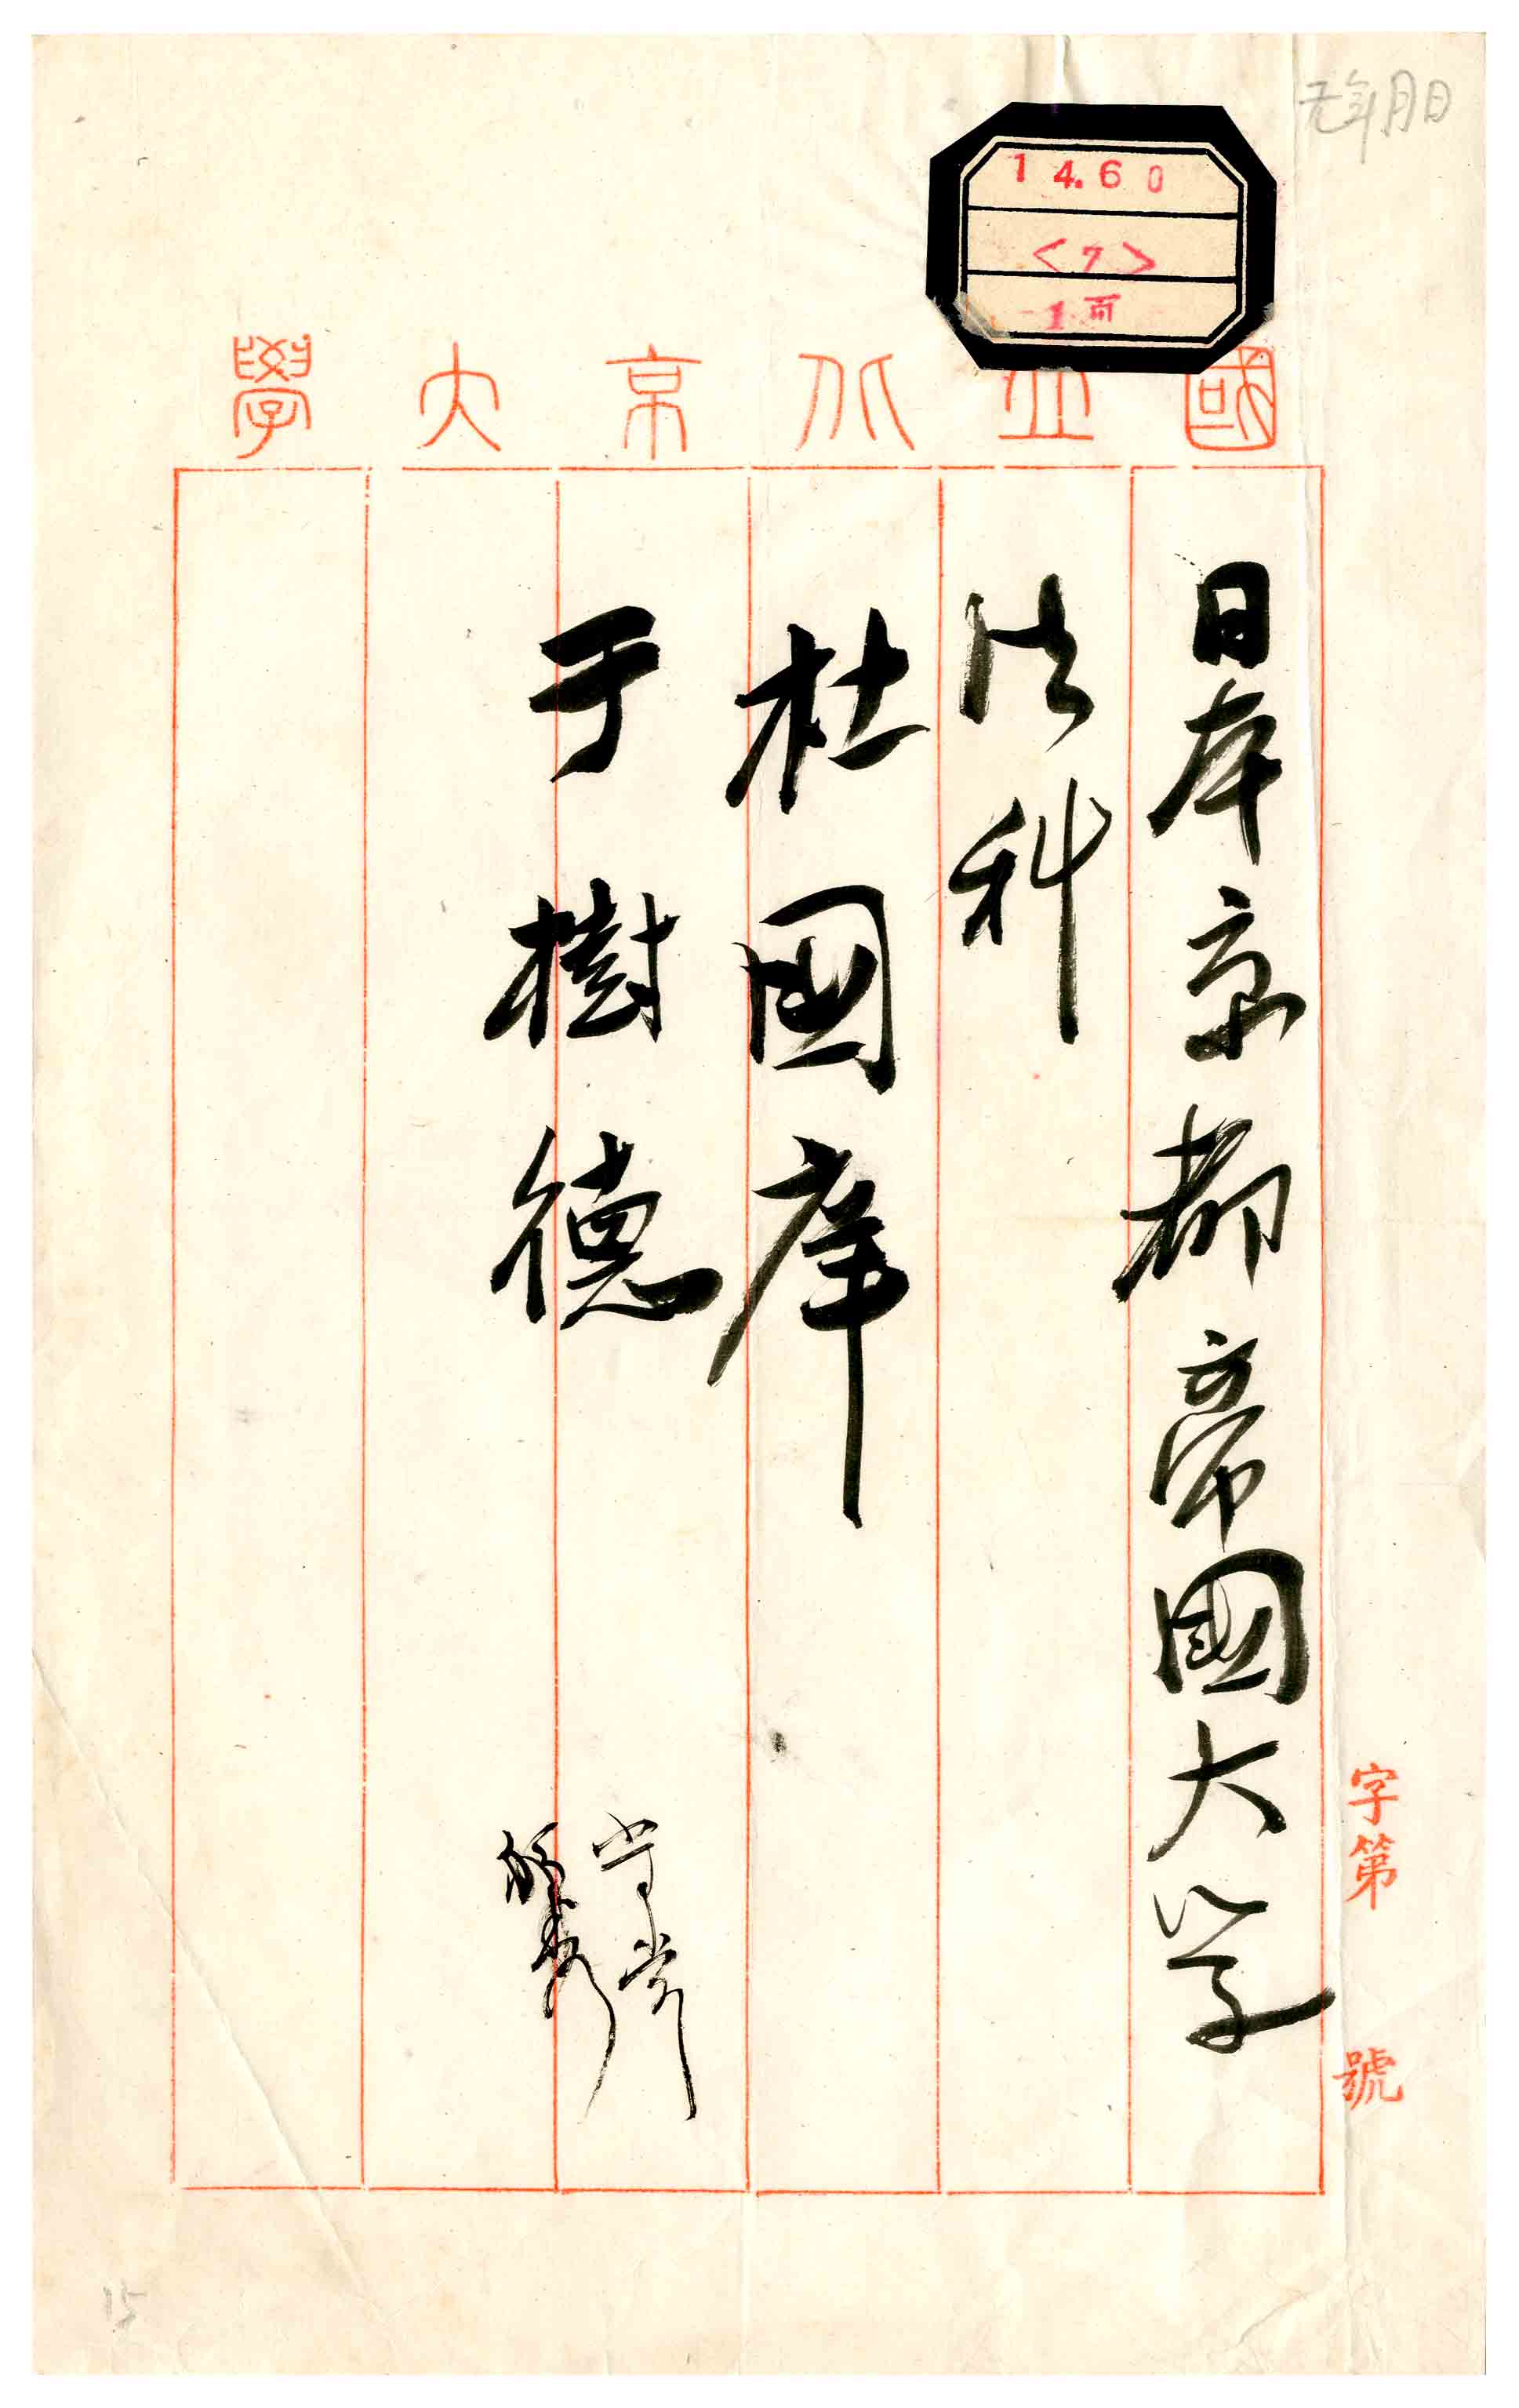 无年月日
14.60
<7>
1页
國立北京大學
日本京都帝國大学
法科
杜國庠
于樹德
守常
字第 號
15